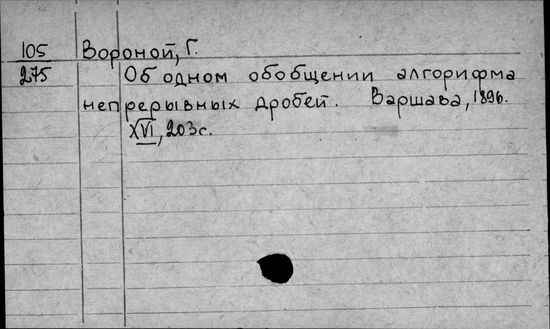 105 Вороной, Г.
275 Об одном обобщении алгорифма
непрерывных дробей. Варшава, 1896.
XVI, 203с.